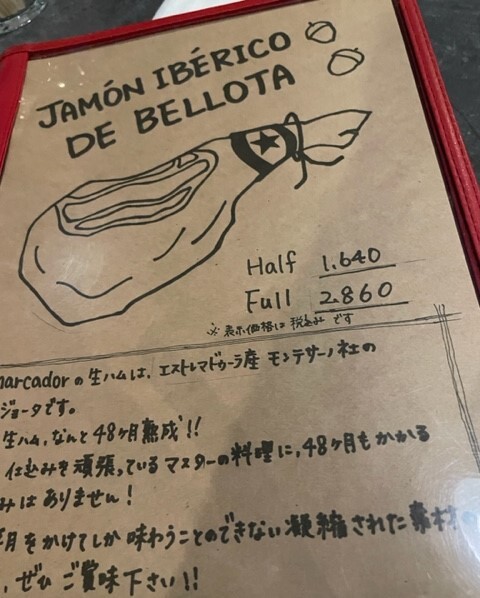 JAMÓN IBÉRICO
DE BELLOTA
Half 1.640
Full 2.860
※表示価格は税込みです
marcadorの生ハムは、エストレマドゥーラ産 モンテサーノ社の
ジョータです。
生ハム、なんと48ヶ月熟成!!
仕込みを頑張っているマスターの料理に、48ヶ月もかかる
みはありません!
月をかけてしか味わうことのできない凝縮された素材の
、ぜひご賞味下さい!!